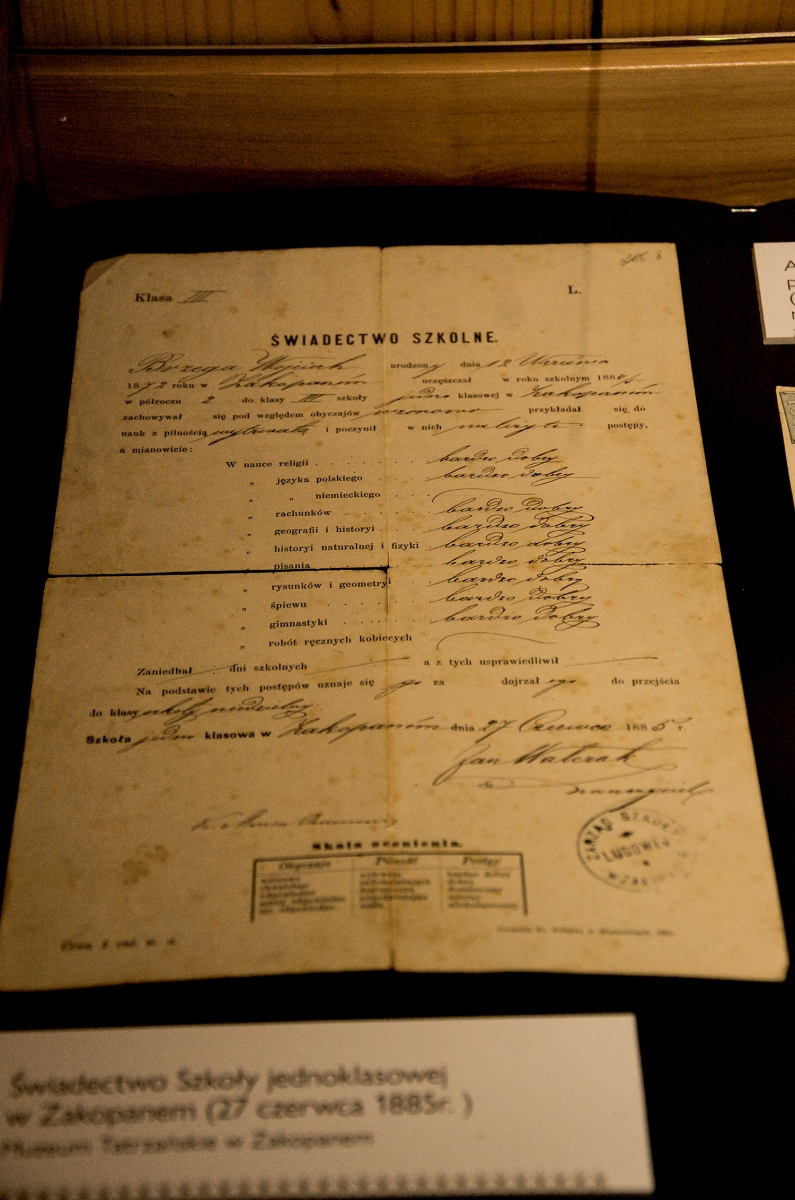 Klasa III L.
ŚWIADECTWO SZKOLNE.
Brzega Wojciech urodzony dnia 12 Września
1872 roku w Zakopanem uczęszczał w roku szkolnym 1884/5
w półroczu 2 do klasy III szkoły jedno klasowej w Zakopanem
zachowywał się pod względem obyczajów wzorowo przykładał się do
nauk z pilnością wytrwałą i poczynił w nich należyte postępy,
a mianowicie:
W nauce religii bardzo dobry
„ języka polskiego bardzo dobry
„ „ niemieckiego
„ rachunków bardzo dobry
„ geografii i historyi bardzo dobry
„ historyi naturalnej i fizyki bardzo dobry
„ pisania bardzo dobry
„ rysunków i geometryi bardzo dobry
„ śpiewu bardzo dobry
„ gimnastyki bardzo dobry
„ robót ręcznych kobiecych
Zaniedbał dni szkolnych a z tych usprawiedliwił
Na podstawie tych postępów uznaje się go za dojrzałego do przejścia
do klasy szkoły niedzielnej
Szkoła jedno klasowa w Zakopanem dnia 27 Czerwca 1885 r.
Jan Walczak
Skala ocenienia.
Obyczaje Pilność Postęp
ZARZĄD SZKOŁY
LUDOWEJ
Świadectwo Szkoły jednoklasowej
w Zakopanem (27 czerwca 1885r. )
Muzeum Tatrzańskie w Zakopanem